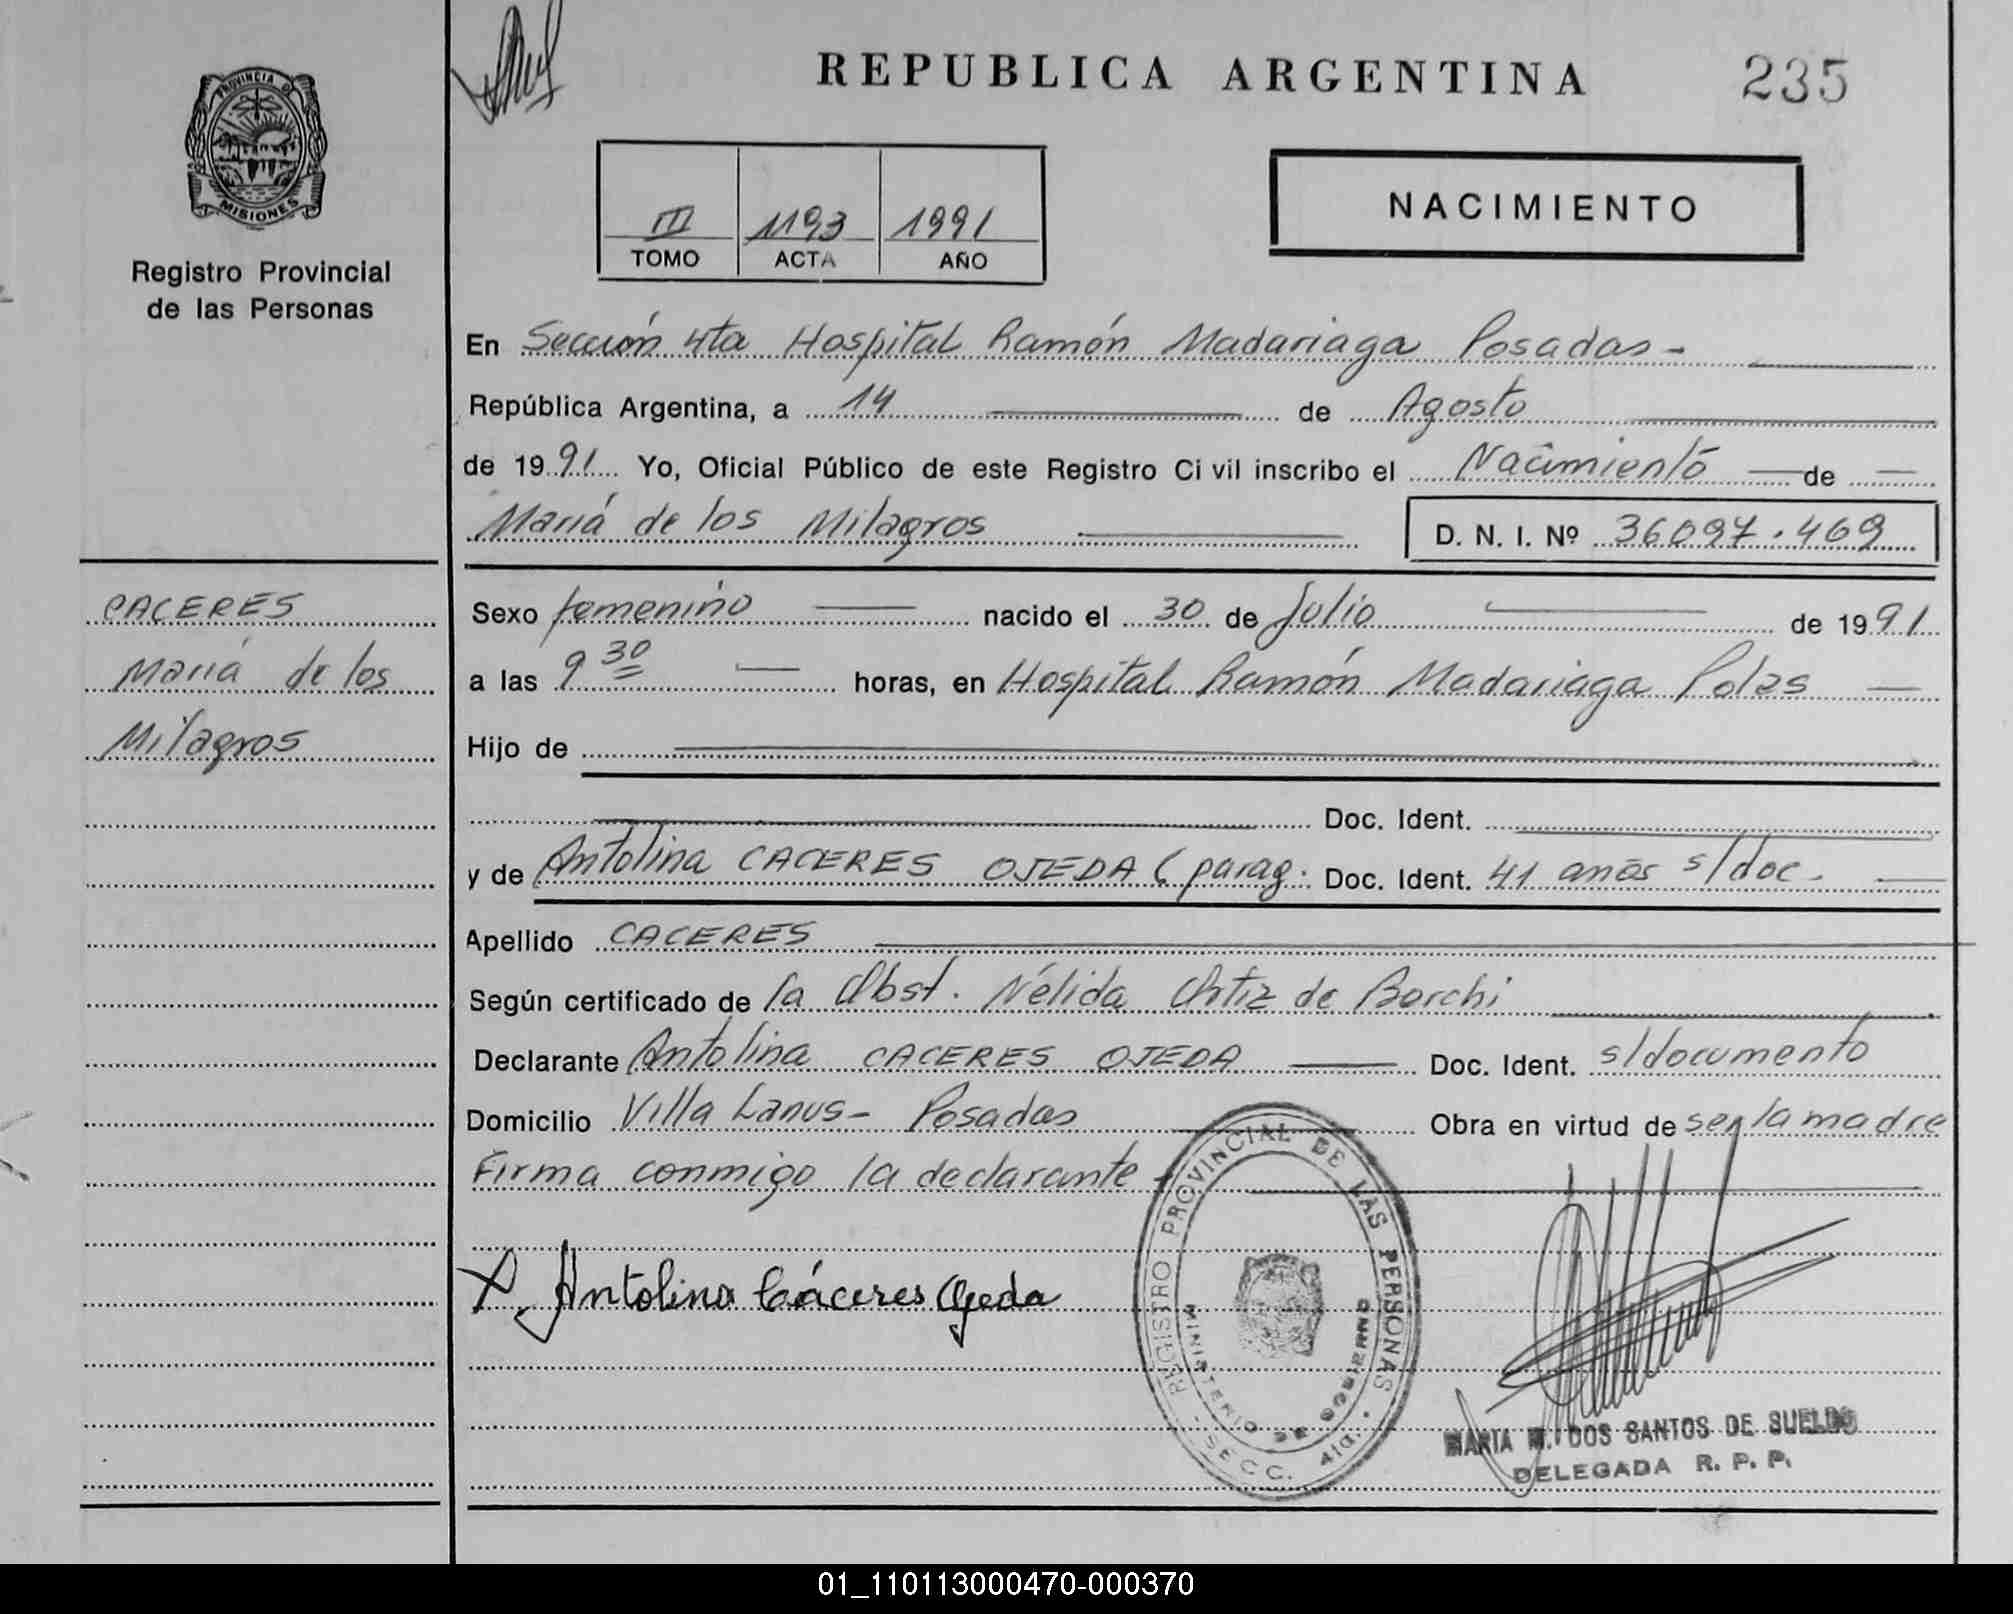 REPUBLICA ARGENTINA
235
PROVINCIA DE
MISIONES
Registro Provincial
de las Personas
III 1193 1991
TOMO ACTA AÑO
NACIMIENTO
En Sección 4ta Hospital Ramón Madariaga Posadas -
República Argentina, a 14 de Agosto
de 1991 Yo, Oficial Público de este Registro Civil inscribo el Nacimiento de
María de los Milagros
D. N. I. Nº 36097.469
CACERES
María de los
Milagros
Sexo femenino nacido el 30 de Julio de 1991
a las 9 30 horas, en Hospital Ramón Madariaga Pdas
Hijo de
Doc. Ident.
y de Antolina CACERES OJEDA (parag. Doc. Ident. 41 años s/doc.
Apellido CACERES
Según certificado de la Obst. Nélida Ortiz de Borchi
Declarante Antolina CACERES OJEDA Doc. Ident. s/documento
Domicilio Villa Lanus - Posadas Obra en virtud de ser la madre
Firma conmigo la declarante
Antolina Cáceres Ojeda
REGISTRO PROVINCIAL DE LAS PERSONAS
MINISTERIO DE GOBIERNO
SECC. 4ta.
MARIA M. DOS SANTOS DE SUELDO
DELEGADA R. P. P.
01_110113000470-000370